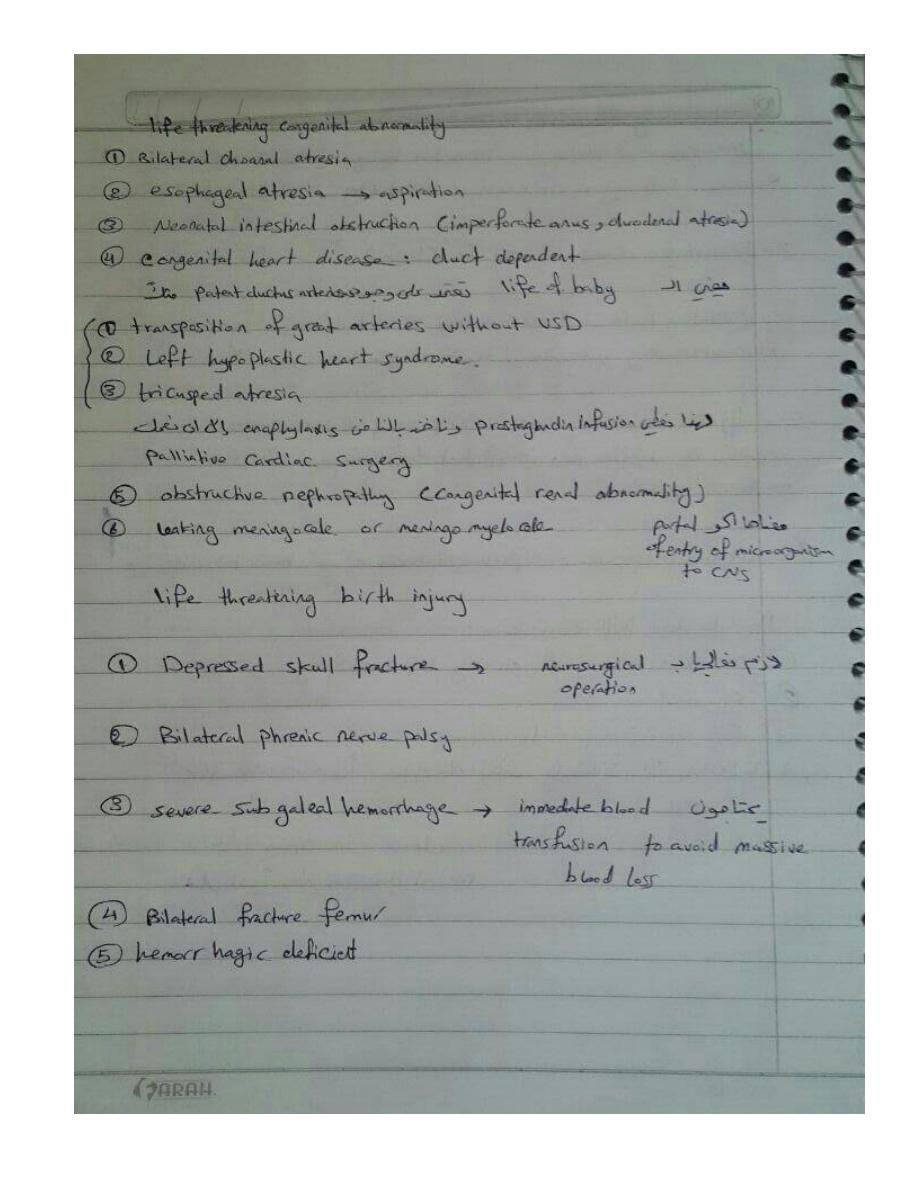 life threatening congenital abnormality
① Bilateral choanal atresia
② esophageal atresia → aspiration
③ Neonatal intestinal obstruction (imperforate anus, duodenal atresia)
④ congenital heart disease : duct dependent
يعني الـ life of baby تعتمد على وجود patent ductus arteriosus
① transposition of great arteries without VSD
② Left hypoplastic heart syndrome.
③ tricusped atresia
لهذا نعطي prostaglandin infusion
palliative cardiac surgery
⑤ obstructive nephropathy (congenital renal abnormality)
⑥ leaking meningocele or meningomyelocele معناها اكو portal
of entry of microorganism
to CNS
life threatening birth injury
① Depressed skull fracture → لازم نعالجها بـ neurosurgical
operation
② Bilateral phrenic nerve palsy
③ severe subgaleal hemorrhage → يحتاجون immediate blood
transfusion to avoid massive
blood loss
④ Bilateral fracture femur
⑤ hemorrhagic deficient
SARAH